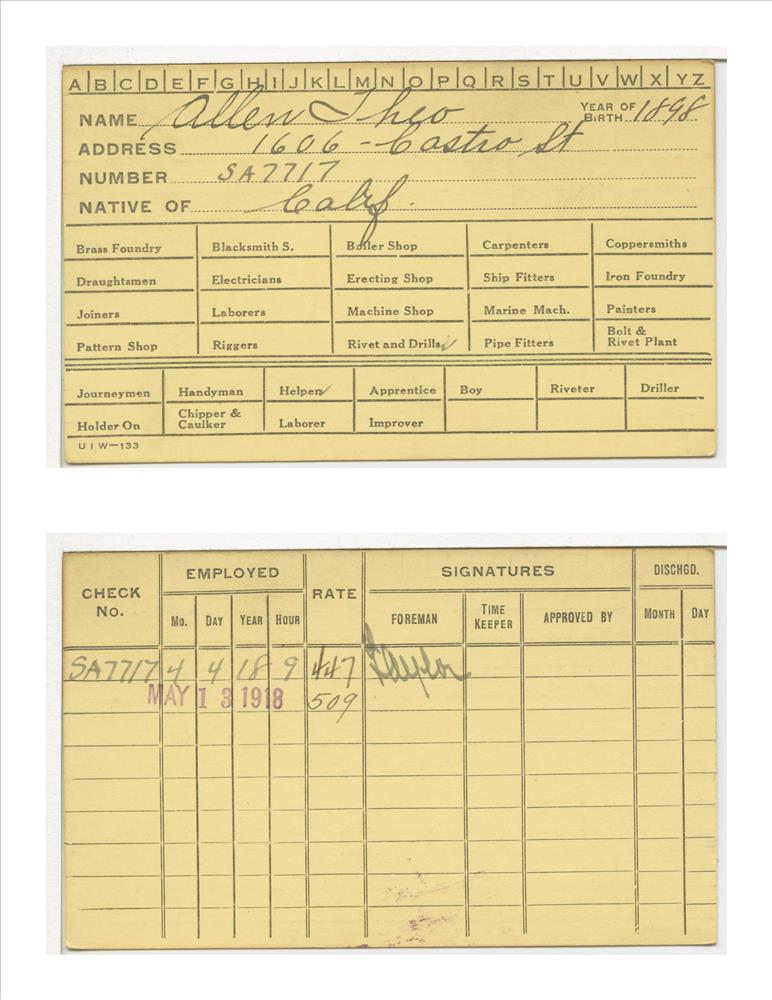 A B C D E F G H I J K L M N O P Q R S T U V W X Y Z
NAME Allen Theo YEAR OF BIRTH 1898
ADDRESS 1606 - Castro St
NUMBER SA7717
NATIVE OF Calif.
Brass Foundry Blacksmith S. Boiler Shop Carpenters Coppersmiths
Draughtsmen Electricians Erecting Shop Ship Fitters Iron Foundry
Joiners Laborers Machine Shop Marine Mach. Painters
Pattern Shop Riggers Rivet and Drills ✓ Pipe Fitters Bolt & Rivet Plant
Journeymen Handyman Helper ✓ Apprentice Boy Riveter Driller
Holder On Chipper & Caulker Laborer Improver
U I W—133
CHECK No. EMPLOYED RATE SIGNATURES DISCHGD.
Mo. DAY YEAR HOUR FOREMAN TIME KEEPER APPROVED BY MONTH DAY
SA7717 4 4 18 9 447 Taylor
MAY 13 1918 509